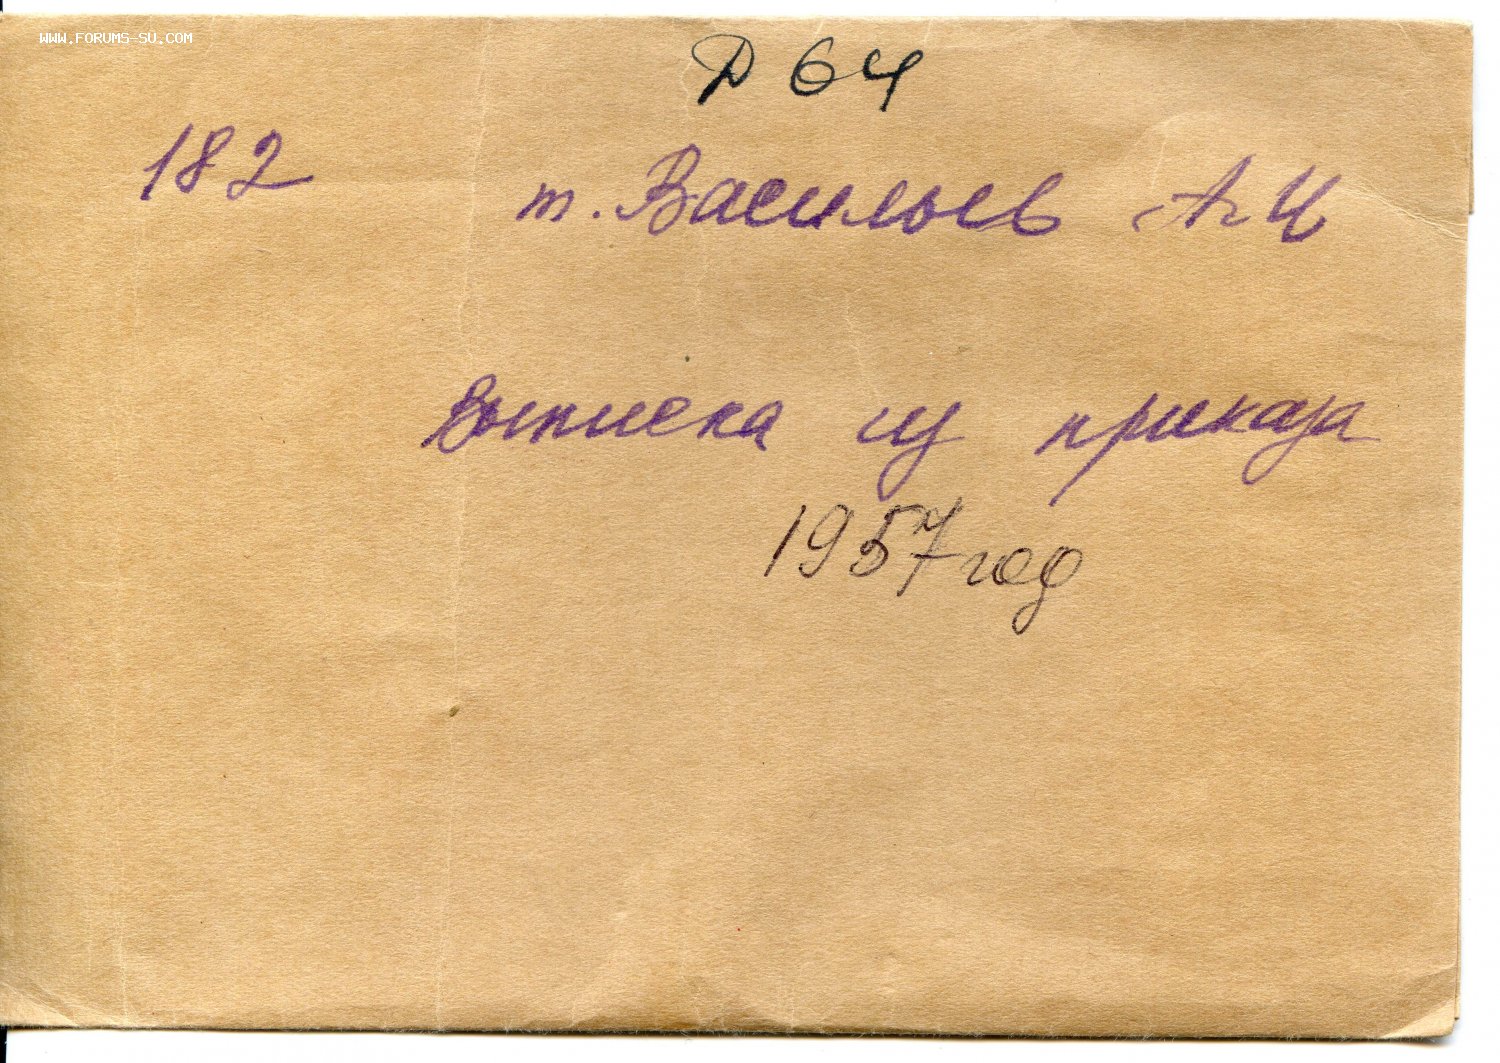 WWW.FORUMS-SU.COM
Д 64
182 т. Васильев А. И
Выписка из приказа
1957 год